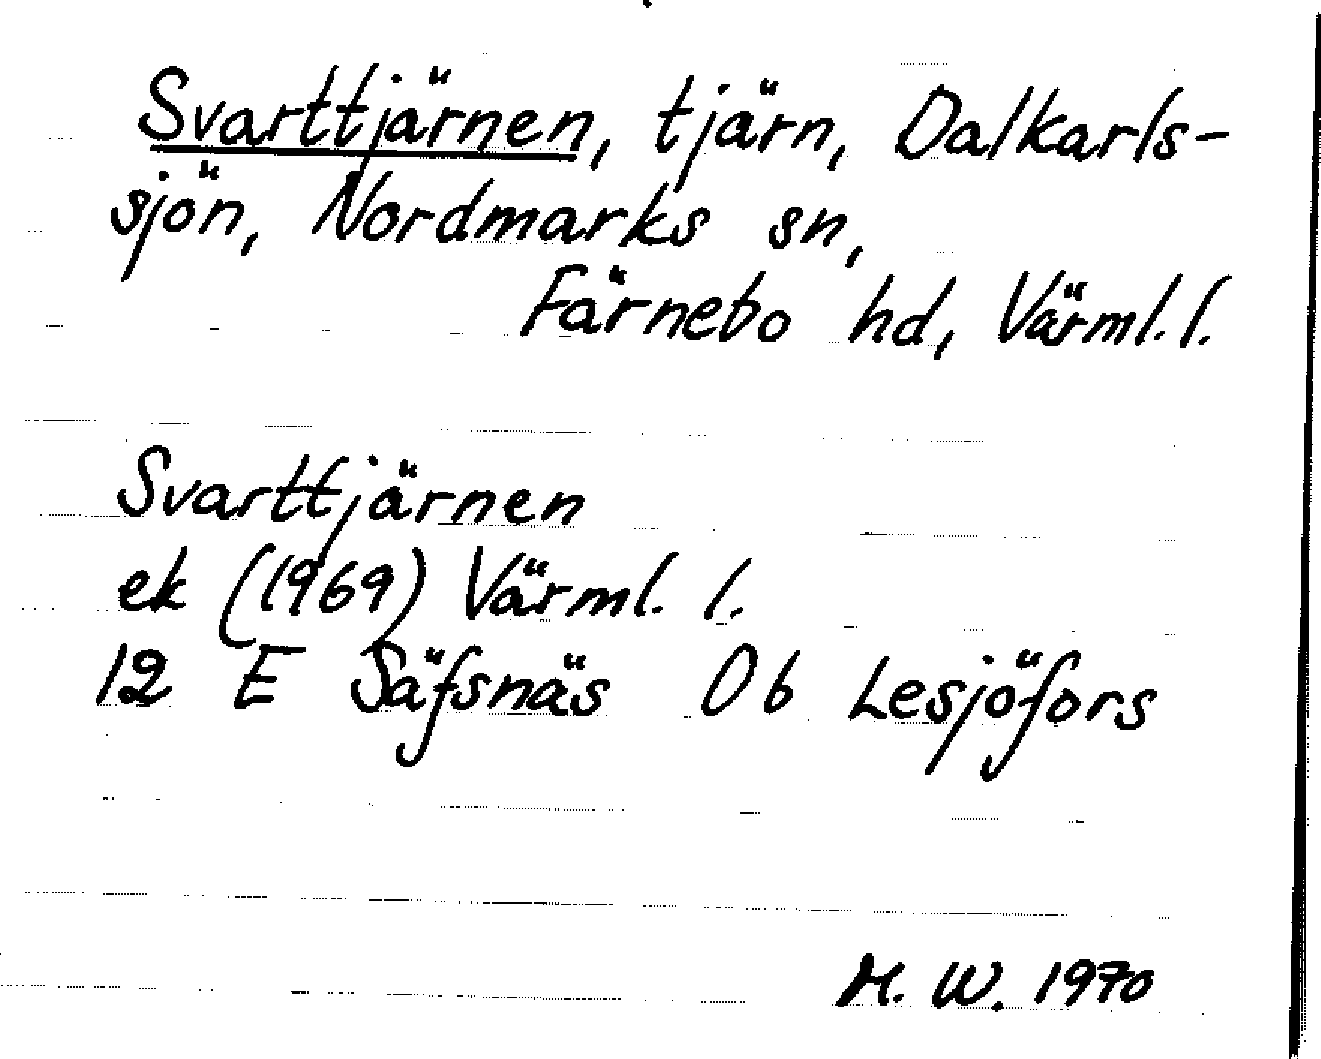 Svarttjärnen, tjärn, Dalkarls-
sjön, Nordmarks sn,
Färnebo hd, Värml. l.
Svarttjärnen
ek (1969) Värml. l.
12 E Säfsnäs 0b Lesjöfors
M. W. 1970